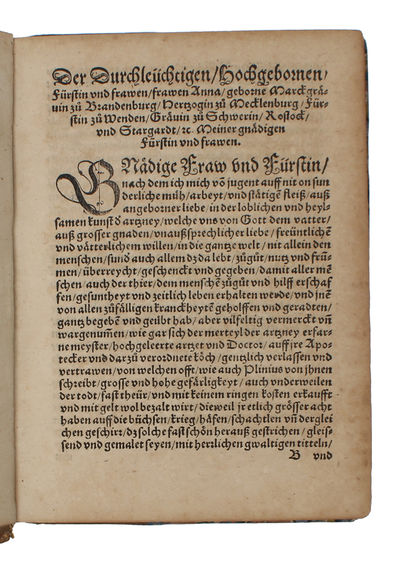 Der Durchleüchtigen/Hochgebornen/
Fürstin vnd frawen/frawen Anna/geborne Marckgrä-
uin zů Brandenburg/Hertzogin zů Mecklenburg/Für-
stin zů Wenden/Gräuin zů Schwerin/Rostock/
vnd Stargardt/ꝛc. Meiner gnädigen
Fürstin vnd frawen.
GNädige Fraw vnd Fürstin/
nach dem ich mich võ jugent auff nit on sun
derliche müh/arbeyt/vnd stätigẽ fleiß/auß
angeborner liebe/in der loblichen vnd heyl-
samen kunst d̕ artzney/welche vns von Gott dem vatter/
auß grosser gnaden/vnaußsprechlicher liebe/freüntlichẽ
vnd vätterlichem willen/in die gantze welt/nit allein den
menschen/sund̕ auch allem dz da lebt/zůgůt/nutz vnd frü-
men/überreycht/geschenckt vnd gegeben/damit aller mẽ
schen/auch der thier/dem menschẽ zůgůt vnd hilff erschaf
fen/gesuntheyt vnd zeitlich leben erhalten werde/vnd jnẽ
von allen zůfälligen kranckheytẽ geholffen vnd geradten/
gantz begeben vnd geübt hab/aber vilfeltig vermerckt vñ
wargenummen/wie gar sich der merteyl der artzney erfar-
ne meyster/hochgeleerte artzet vnd Doctor/auff jre Apo-
tecker vnd darzů verordnete köch/gentzlich verlassen vnd
vertrawen/von welchen offt/wie auch Plinius von jhnen
schreibt/grosse vnd hohe gefärligkeyt/auch vnderweilen
der todt/fast theür/vnd mit keinem ringen kosten erkaufft
vnd mit gelt wol bezalt wirt/dieweil jr etlich grösser acht
haben auff die büchsen/krieg/häfen/schachtlen vñ derglei
chen geschirr/dz solche fast schön herauß gestrichen/gleis-
send vnd gemalet seyen/mit herrlichen gwaltigen titteln/
B vnd